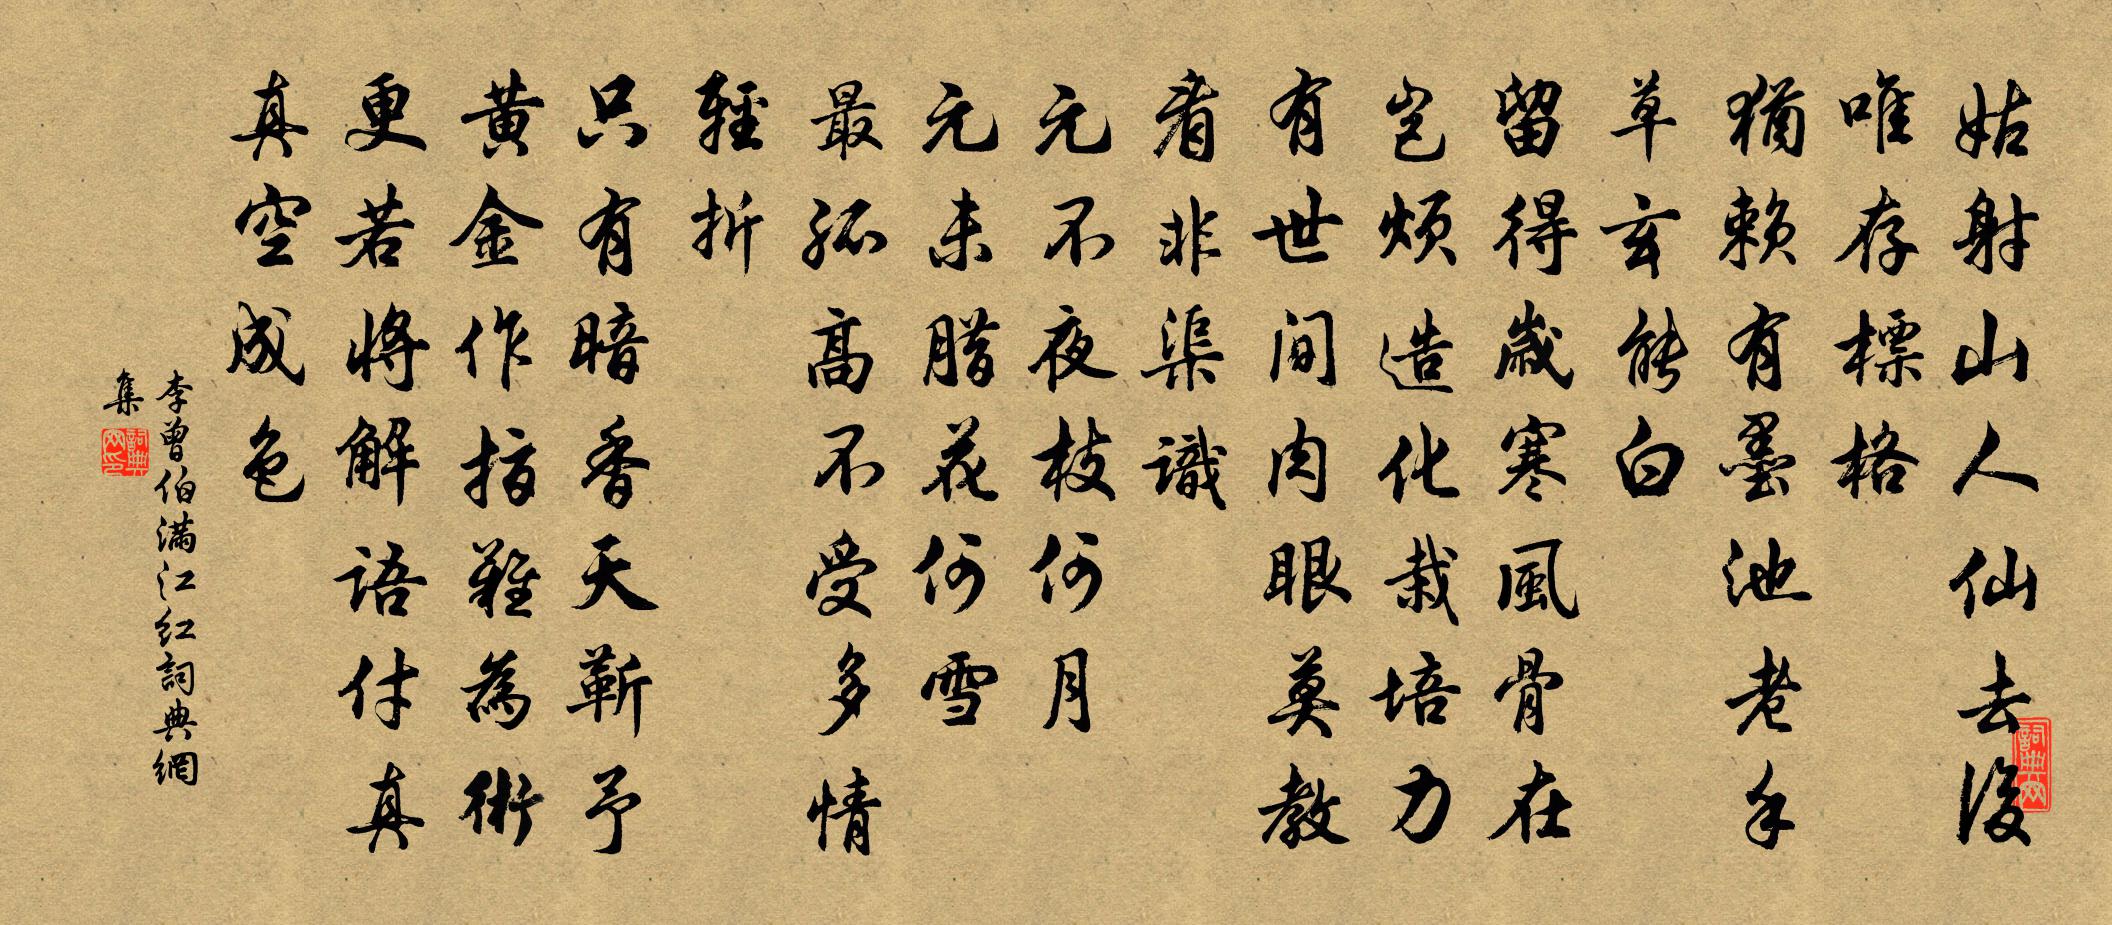 姑射山人仙去後
唯存標格
猶賴有墨池老手
草玄能白
留得歲寒風骨在
豈煩造化栽培力
有世間肉眼莫教
看非渠識
元不夜枝何月
元未腊花何雪
最孤高不受多情
輕折
只有暗香天靳予
黃金作指難為術
更若將解語付真
真空成色
李曾伯滿江紅詞典網
集
詞典网
詞典网印